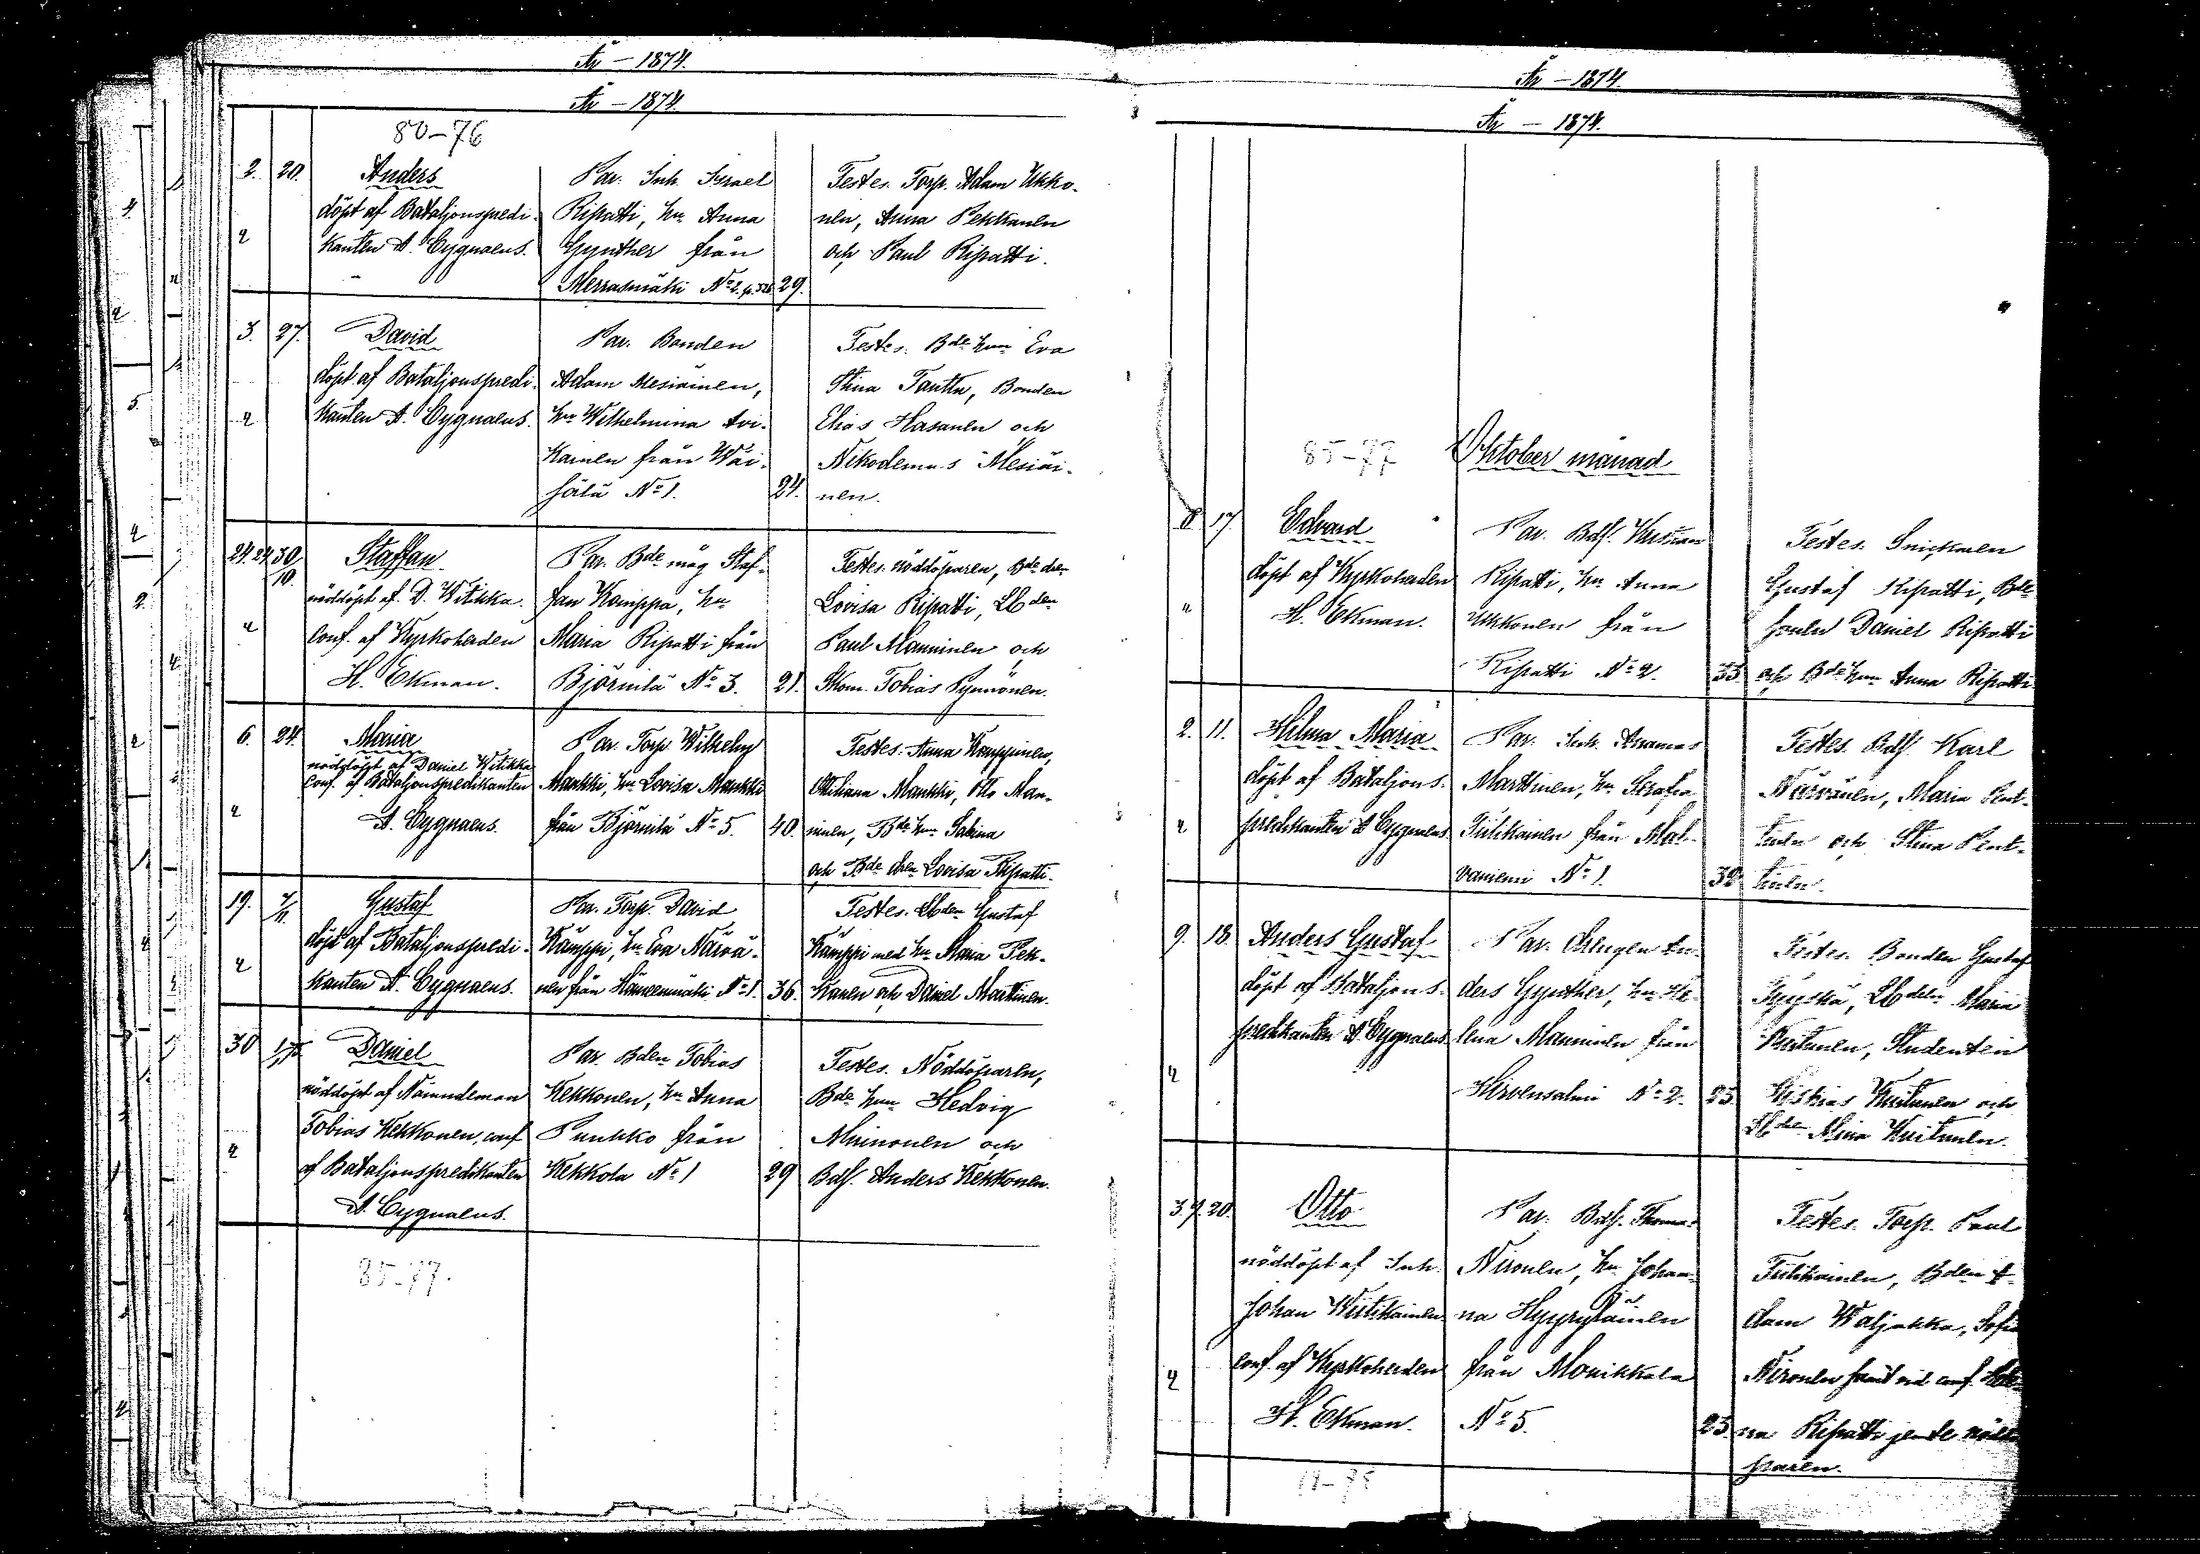 År – 1874.
År – 1874.
80–76
2. 20. Anders
döpt af Bataljonspredi-
kanten A. Cygnaeus.
Par. Inh. Israel
Ripatti, hu Anna
Gynther från
No 2. 29.
Testes. Torp. Adam Ukko-
nen, Anna Pekkanen
och Paul Ripatti.
3. 27. David
döpt af Bataljonspredi-
kanten A. Cygnaeus.
Par. Bonden
Adam Mesiäinen,
hu Wilhelmina Avi-
kainen från Wäi-
sälä No 1. 24.
Testes. Bde hun Eva
Stina Tanttu, Bonden
Elias Hasanen och
Nikodemus Mesiäi-
nen.
24 24 30/10. Staffan.
nöddöpt af D. Witikka.
Conf. af Kyrkoherden
H. Ekman.
Par. Bde måg Staf-
fan Kamppa, hu
Maria Ripatti från
Björnilä No 3. 21.
Testes. nöddöparen, Bde dren
Lovisa Ripatti, Lbden
Paul Manninen och
Skom. Tobias Pynnönen.
6. 24. Maria
nöddöpt af Daniel Witikka
Conf. af Bataljonspredikanten
A. Cygnaeus.
Par. Torp. Wilhelm
Mankki, hu Lovisa Mankki
från Björnilä No 5. 40.
Testes. Anna Kamppinen,
Otiliana Mankki, Otto Man-
ninen, Bde hun Sabina
och Bde dren Lovisa Ripatti.
19. Gustaf
döpt af Bataljonspredi-
kanten A. Cygnaeus.
Par. Torp. David
Kämppi, hu Eva Närvä-
nen från Hämeenmäki No 1. 36.
Testes. Lbden Gustaf
Kämppi med hu Maria Pek-
kanen och Daniel Marttinen.
30 Daniel
nöddöpt af Nämndeman
Tobias Kekkonen, conf.
af Bataljonspredikanten
A. Cygnaeus.
Par. Bden Tobias
Kekkonen, hu Anna
Punkko från
Kekkola No 1 29
Testes. Nöddöparen,
Bde hun Hedvig
Muinonen och
Bdes. Anders Kekkonen.
85–77.
År – 1874.
År – 1874.
85–77 Oktober månad
17. Edvard
döpt af Kyrkoherden
H. Ekman.
Par. Bdes.
Ripatti, hu Anna
Ukkonen från
Ripatti No 2. 33.
Testes. Snickaren
Gustaf Ripatti, Bde
sonen Daniel Ripatti
och Bde hun Anna Ripatti.
2. 11. Hilma Maria
döpt af Bataljons-
predikanten A. Cygnaeus
Par. Inh. Ananias
Marttinen, hu Serafia
Tiilikainen från Mat-
vaniemi No 1. 32.
Testes. Bdes. Karl
Närvänen, Maria Pent-
tinen och Stina Pent-
tinen.
9. 18. Anders Gustaf
döpt af Bataljons-
predikanten A. Cygnaeus
Par. Drengen An-
ders Gynther, hu He-
lena Manninen från
Hirvensalmi No 2. 23.
Testes. Bonden Gustaf
Lbdren Maria
Kuitunen, Studenten
Kuitunen och
Lbdren Mina Kuitunen.
3. 9. 20. Otto
nöddöpt af Inh.
Johan Wiitikainen
Conf. af Kyrkoherden
H. Ekman.
Par. Bdes. Thomas
Nironen, hu Johan-
na Hyyryläinen
från Monikkala
No 5. 23.
Testes. Torp. Paul
Tiilikainen, Bden A-
dam Waljakka, Sofia
Nironen samt vid conf. Hele-
na Ripatti jemte nöddö-
paren.